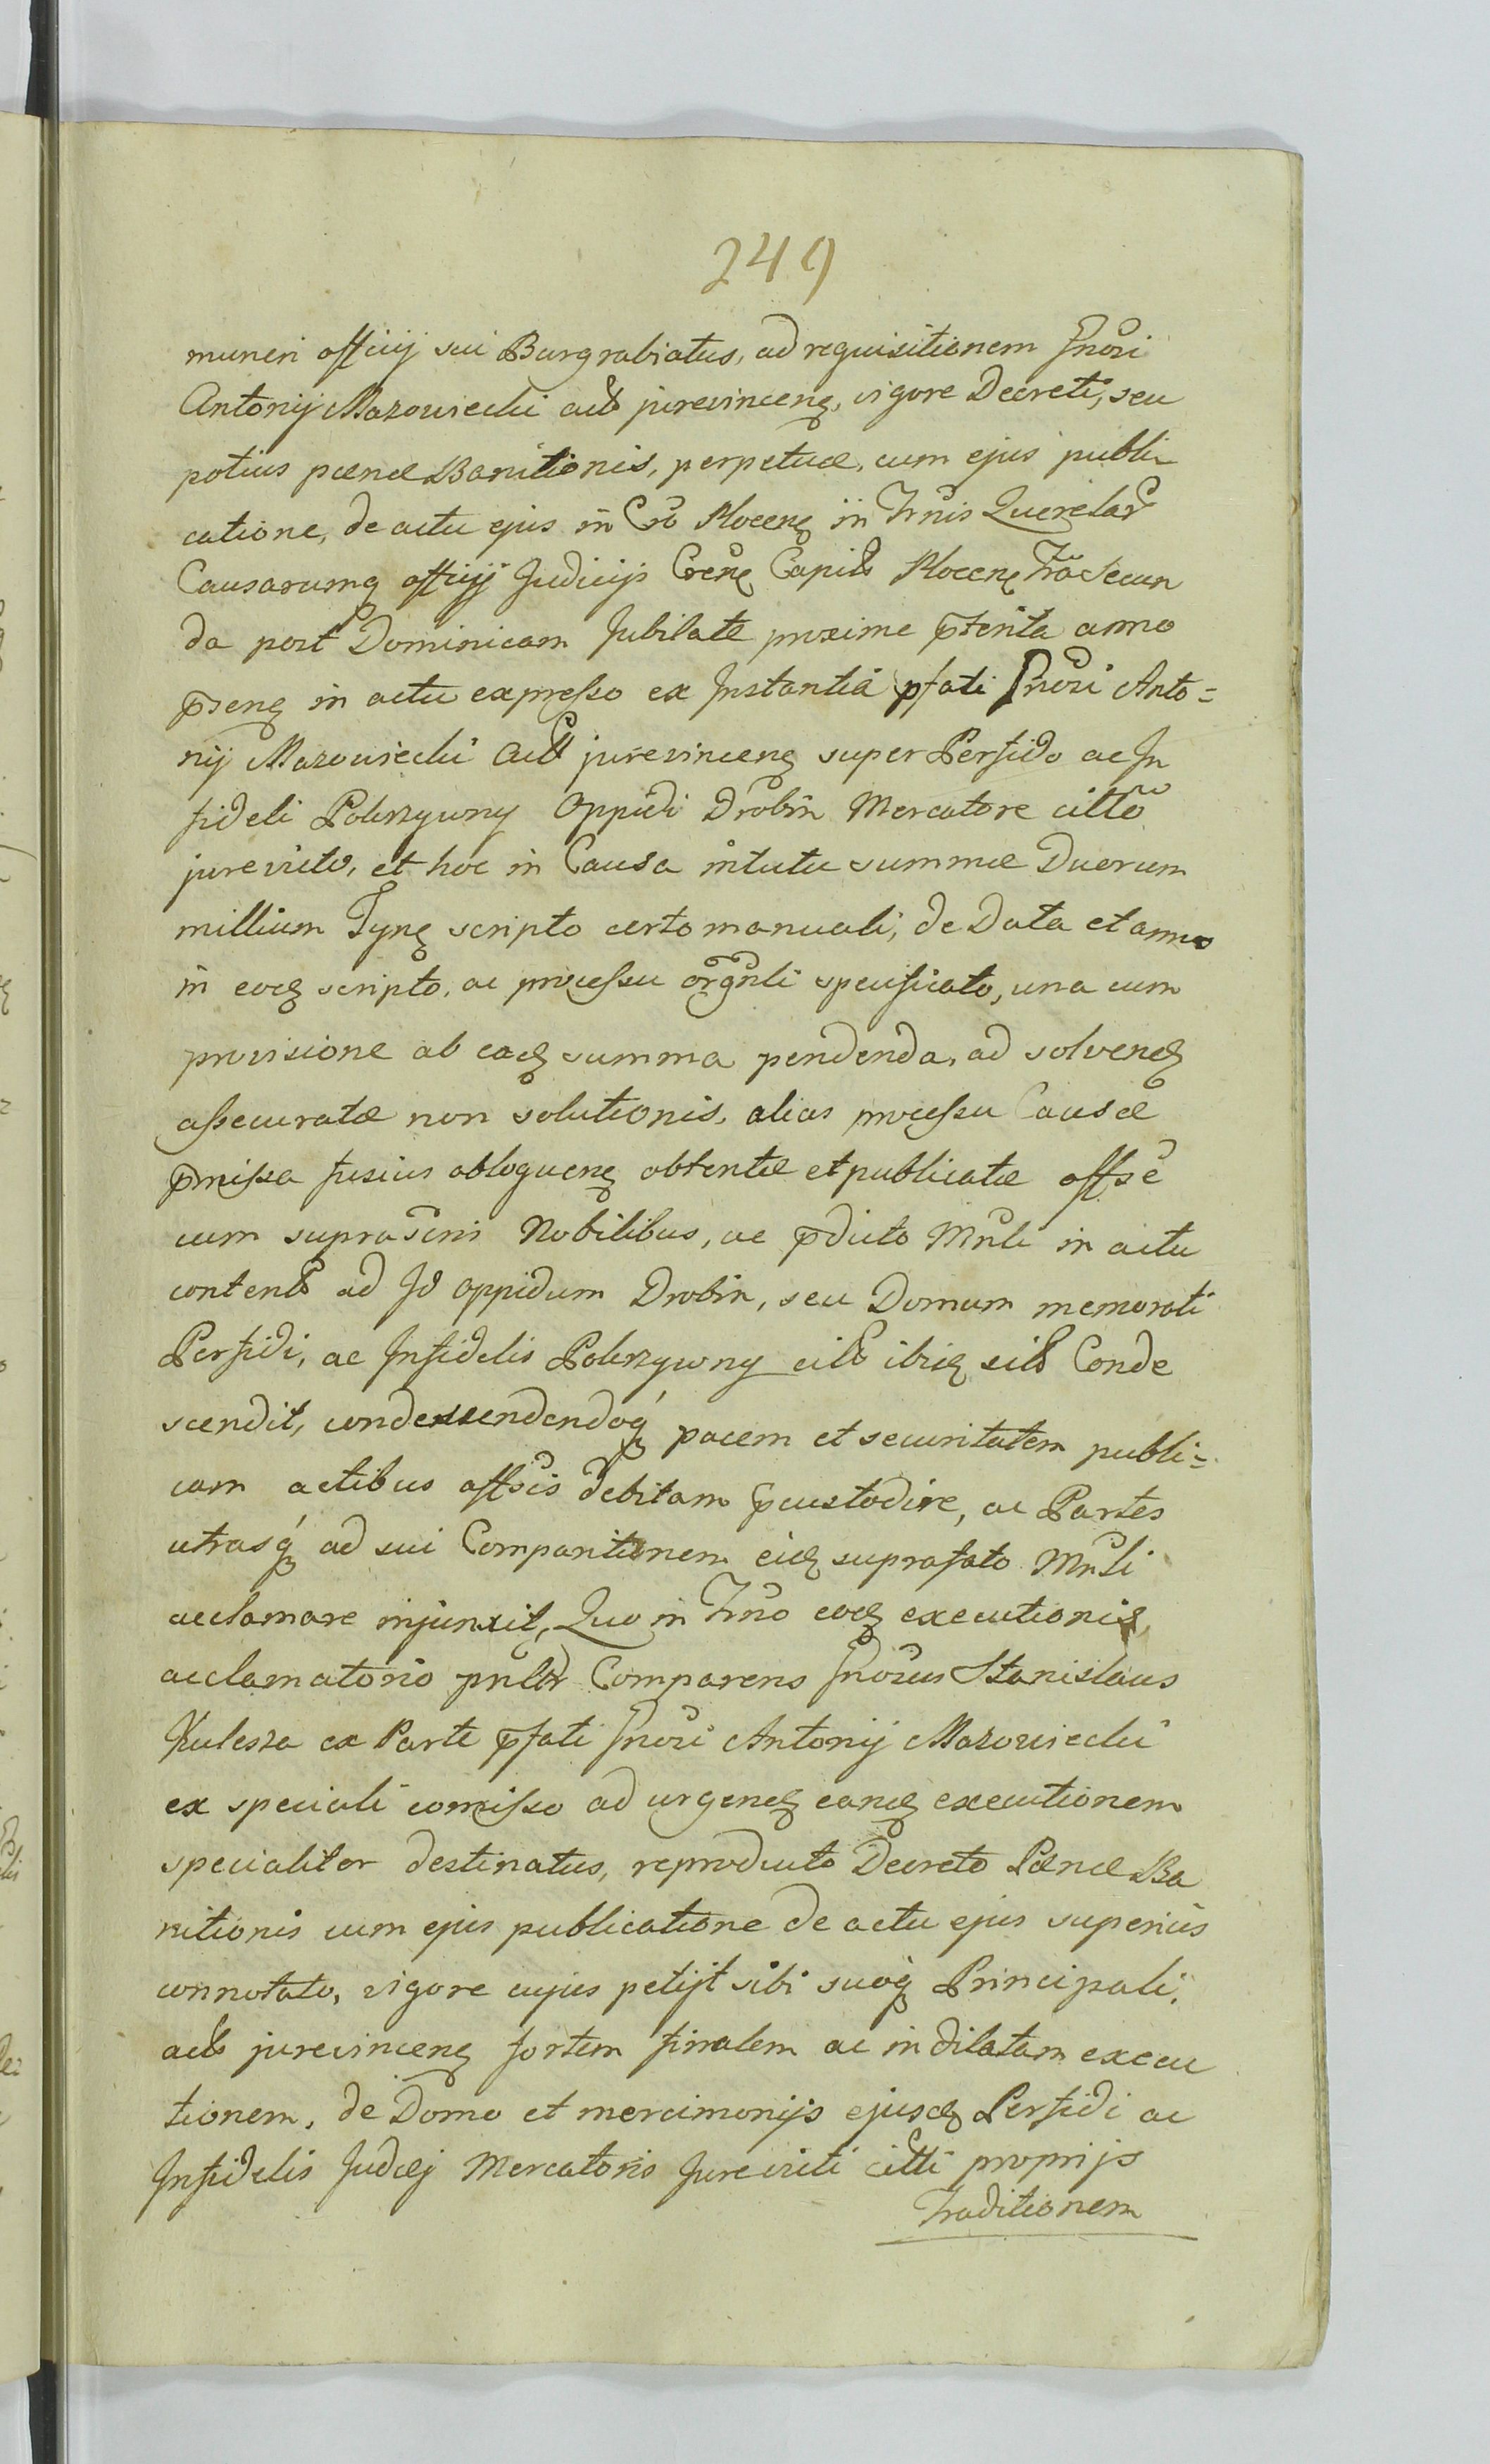 249
muneri officij sui Burgrabiatus, ad requisitionem Gnosi
Antonij Mazowiecki act jurevincenꝫ, vigore Decreti, seu
potius pænæ Banitionis, perpetuæ, cum ejus publi
catione, de actu ejus in Cro Plocenꝫ in Trnis Querelar
Causarumq officij Judicijs Crenꝫ Capit Plocenꝫ Fra Secun
da post Dominicam Jubilate proxime pterita anno
psenꝫ in actu expresso ex Instantia pfati Gnosi Anto=
nij Mazowiecki Act jurevincenꝫ super Perfido ac In
fideli Pokrzywny Oppidi Drobin Mercatore citto
jurevicto, et hoc in Causa intutu summæ Duorum
millium Tynꝫ scripto certo manuali, de Data et anno
in eodꝫ scripto, ac processu orgnli specificato, una cum
provisione ab eadꝫ summa pendenda, ad solvendꝫ
assecuratæ non solutionis, alias processu Causæ
pmissa fusius obloquenꝫ obtentæ et publicatæ offse
cum suprascris Nobilibus, ac pdicto Mnli in actu
content ad Id oppidum Drobin, seu Domum memorati
Perfidi, ac Infidelis Pokrzywny cit ibidꝫ sit Conde
scendit, condescendendoq pacem et securitatem publi=
cam actibus offsis debitam pcustodire, ac Partes
utrasq ad sui Comparitionem eidꝫ suprafato Mnli
acclamare injunxit, Quo in Trno eodꝫ executionis,
acclamatorio pnltr Comparens Gnosus Stanislaus
Kulesza ex Parte pfati Gnosi Antonij Mazowiecki
ex speciali comisso ad urgendꝫ eandꝫ executionem
specialiter destinatus, reproducto Decreto Pænæ Ba
nitionis cum ejus publicatione de actu ejus superius
connotato, vigore cujus petijt sibi suoq Principali,
act jurevincenꝫ fortem finalem ac indilatam execu
tionem, de Domo et mercimonijs ejusdꝫ Perfidi ac
Infidelis Judæj Mercatoris Jurevicti citti proprijs
Traditionem